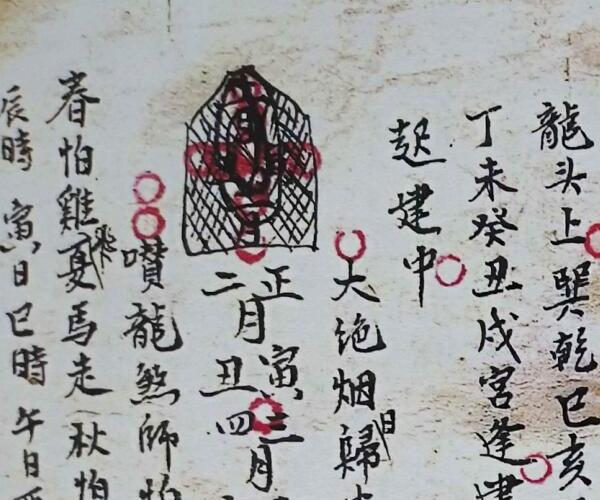 龍头上巽乾巳亥
丁未癸丑戌宮逢建
起建中
大绝烟歸日
正寅三月
二月丑四
囋龍煞師怕
春怕雞飛夏馬走秋怕
辰時寅日巳時午日